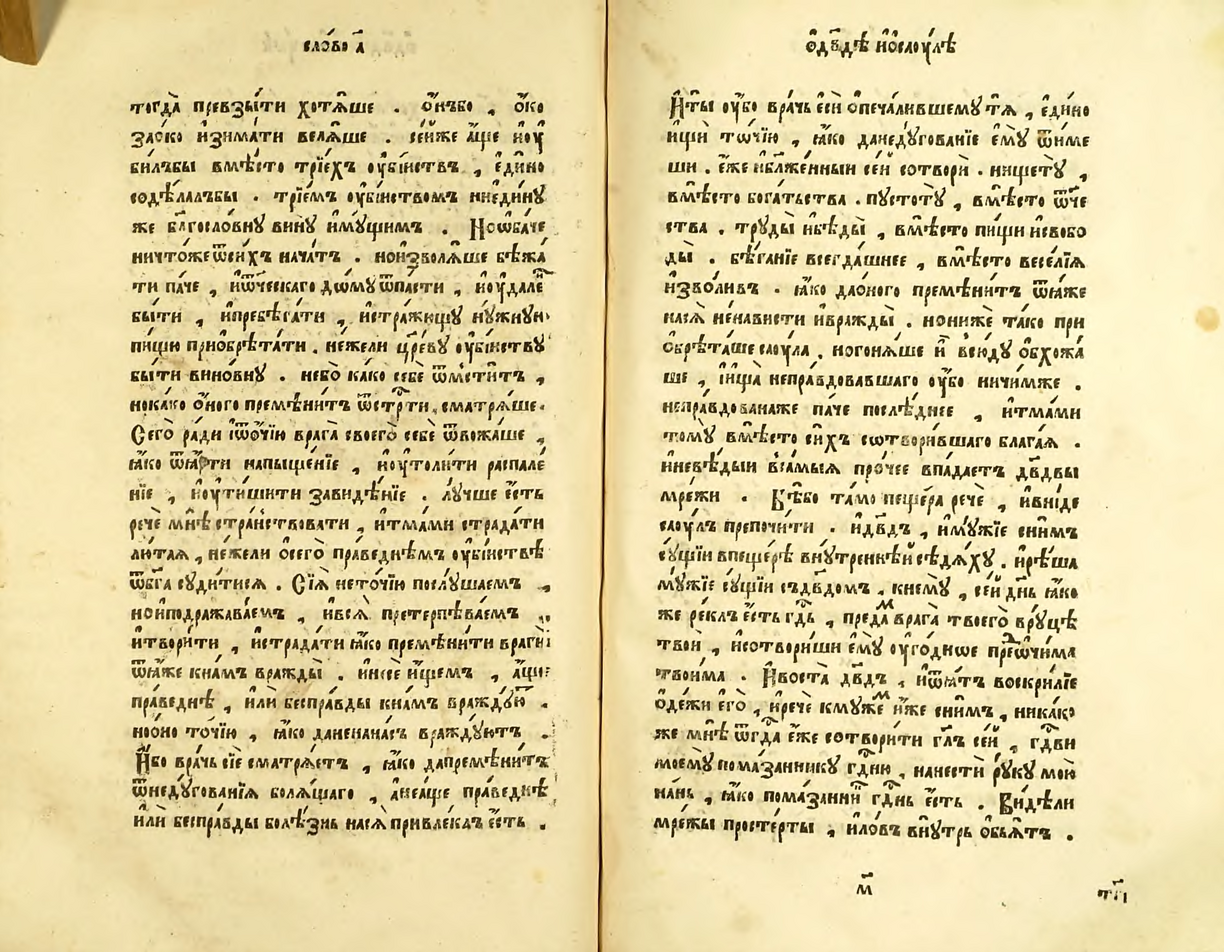 сло́во а҃
тогда̀ превзы́ти хотѧ́ше . о҆́нъбо , о҆́ко
заѻко и҆зима́ти велѧ́ше . се́йже а҆́ще и҆оу҆
би́лъбы вмѣ́сто трїе́хъ оу҆бі́иствъ , є҆ди́но
содѣ́лалъбы . трїе́мъ оу҆бі́иствомъ ниє҆ди́нꙋ
же бл҃гословнꙋ винꙋ̀ и҆мꙋ́щимъ . Ноѡба́че
ничто́жеѿси́хъ нача́тъ . ноизволѧ́ше бѣжа́
ти па́че , и҆ѻ҆ч҃ескаго до́мꙋ ѿпа́сти , и҆оу҆дале́
бы́ти , и҆пребѣга́ти , и҆стра́жꙋщꙋ нꙋ́жнꙋю
пи́щꙋ приобрѣта́ти . не́жели цр҃е́вꙋ оу҆бі́иствꙋ
бы́ти вино́внꙋ . небо̀ ка́ко себѐ ѿмсти́тъ ,
нока́ко о҆́ного премѣни́тъ ѿстр҃ти , сматрѧ́ше .
Сего̀ ра́ди і҆ѿѻ҆чі́ю врага̀ своего̀ себѐ ѿвожа́ше ,
ꙗ҆́ко ѿꙗ҆́ти напыще́нїе , и҆оу҆толи́ти распале́
нїе , и҆оу҆тиши́ти зави́дѣнїе . лꙋ́чше є҆́сть
речѐ мнѣ̀ стра́нствовати , и҆тма́ми страда́ти
лю́таѧ , не́жели ѻ҆сего̀ пра́веднѣмъ оу҆бі́иствѣ
ѿбг҃а сꙋди́тисѧ . Сїѧ̀ нето́чїю послꙋ́шаемъ ,
нои҆подража́ваемъ , и҆всѧ̀ претерпѣва́емъ
и҆твори́ти , и҆страда́ти ꙗ҆́ко премѣни́ти врагѝ
ѿꙗ҆́же кна́мъ вражды̀ . и҆нсѐ и҆́щемъ , а҆́ще
пра́веднѣ , и҆лѝ беспра́вды кна́мъ враждꙋ́ю .
ноѻно то́чїю , ꙗ҆́ко дане́нана́съ враждꙋ́ютъ .
И҆́бо вра́чь сїѐ сматрѧ́етъ , ꙗ҆́ко дапремѣни́тъ
ѿнедꙋ́гованїѧ болѧ́щаго , а҆неа҆́ще пра́веднѣ
и҆лѝ беспра́вды болѣ́знь насѧ̀ привле́клъ є҆́сть .
ѻ҆дв҃дѣ и҆ѻ҆саоу́лѣ
И҆ты̀ оу҆́бо вра́чь є҆сѝ ѻпеча́лившемꙋ тѧ̀ , є҆ди́но
ищѝ то́чїю , ꙗ҆́ко данедꙋ́гованїе є҆мꙋ̀ ѿи́ме
ши . є҆́же и҆бл҃же́нныи се́й сотворѝ . нищетꙋ̀ ,
вмѣ́сто бога́тьства . пꙋстотꙋ̀ , вмѣ́сто ѻ҆ч҃е
ства . трꙋды̀ и҆бѣды̀ , вмѣ́сто пи́щи и҆свобо
ды̀ . бѣ́ганїе всегда́шнее , вмѣ́сто весе́лїѧ
и҆зво́ливъ . ꙗ҆́ко даѻ́ного премѣни́тъ ѿꙗ҆́же
насѧ̀ не́нависти и҆вражды̀ . нонижѐ та́ко при
ѻбрѣта́ше саоу́ла , ногонѧ́ше и҆̀ всю́дꙋ ѻ҆бхожа́
ше , и҆ща̀ непра́вдовавшаго оу҆́бо ничи́мже .
непра́вдованаже па́че послѣ́днее , и҆тма́ми
томꙋ̀ вмѣ́сто си́хъ сотвори́вшаго блага́ѧ .
и҆невѣ́дыи в̾са́мыѧ про́чее впа́даетъ дв҃дѡвы
мре́жи . Бѣ́бо та́мо пеще́ра речѐ , и҆вни́де
саоу́лъ препочи́ти . и҆дв҃дъ , и҆мꙋ́жїе сни́мъ
сꙋ́щїи впеще́рѣ внꙋ́треннѣй сѣдѧ́хꙋ . и҆рѣ́ша
мꙋ́жїе сꙋ́щїи съдв҃домъ , кнемꙋ̀ , се́й дн҃ь ꙗ҆́ко
же ре́клъ є҆́сть гд҃ь , преда́мъ врага̀ твоего̀ врꙋ́цѣ
твоѝ , и҆сотвори́ши є҆мꙋ̀ оу҆го́дное пре́дѻчи́ма
твои́ма . И҆воста̀ дв҃дъ , и҆ѿꙗ҆́тъ воскри́лїе
ѻ҆де́жи є҆го̀ , и҆речѐ кмꙋже́мъ и҆́же сни́мъ , ника́ко
же мнѣ̀ ѿгд҃а є҆́же сотвори́ти гл҃ъ се́й , гд҃ви
моемꙋ̀ пома́занникꙋ гд҃ню , нанестѝ рꙋ́кꙋ мою̀
на́нь , ꙗ҆́ко пома́занни гд҃нь є҆́сть . Ви́дѣли
мре́жы просте́рты , и҆ло́въ внꙋ́трь ѻ҆б̾ꙗ́тъ .
м҃